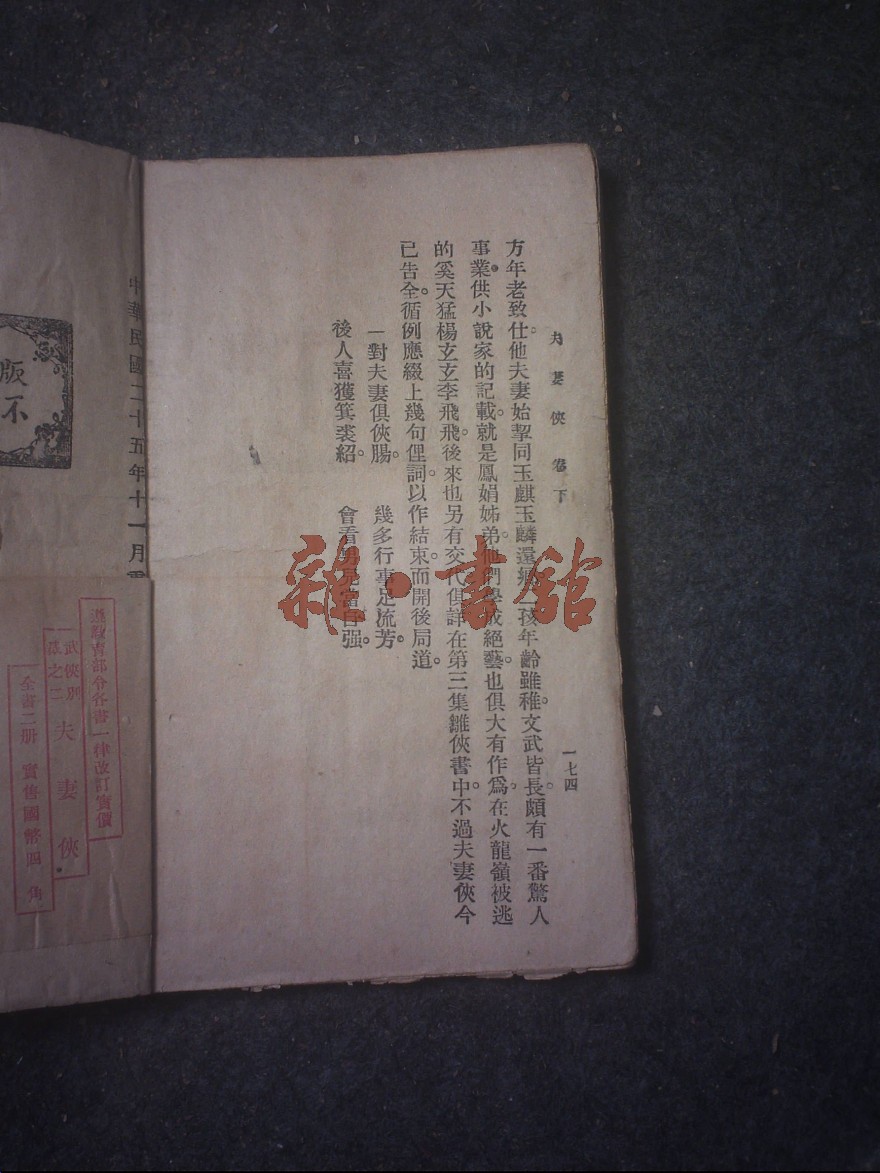 夫妻俠 卷下
一七四
方年老致仕。他夫妻始挈同玉麒玉麟還鄉二孩年齡雖稚。文武皆長。頗有一番驚人
事業。供小說家的記載。就是鳳娟姊弟。他們學成絕藝。也俱大有作爲。在火龍嶺被逃
的奚天猛楊玄玄李飛飛。後來也另有交代。俱詳在第三集雛俠書中。不過夫妻俠今
已告全。循例應綴上幾句俚詞。以作結束。而開後局道。
一對夫妻俱俠腸。 幾多行事足流芳。
後人喜獲箕裘紹。 會看 自强。
雜·書館
中華民國二十五年十一月
版
不
遵教育部令各書一律改訂實價
武俠別裁之二 夫妻俠
全書二册 實售國幣四角